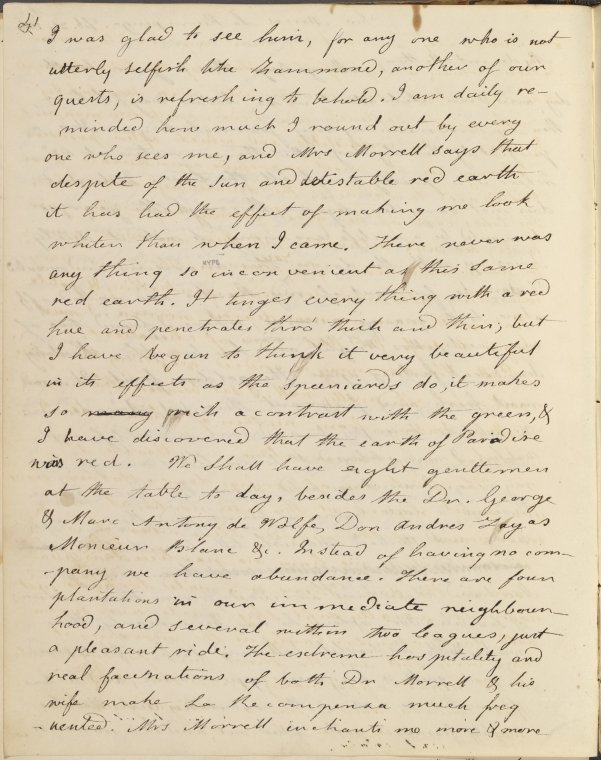 41
I was glad to see him, for any one who is not
utterly selfish like Hammond, another of our
guests, is refreshing to behold. I am daily re-
minded how much I round out by every
one who sees me, and Mrs Morrell says that
despite of the sun and detestable red earth
it has had the effect of making me look
whiter than when I came. There never was
NYPL
any thing so inconvenient as this same
red earth. It tinges every thing with a red
hue and penetrates thro' thick and thin, but
I have begun to think it very beautiful
in its effects as the speniards do, it makes
so many rich a contrast with the green, &
I have discovered that the earth of Paradise
was red. We shall have eight gentlemen
at the table to day, besides the Dr. George
& Marc Antony de Wolfe, Don Andres Zayas
Monieur Blanc &c. Instead of having no com-
-pany we have abundance. There are four
plantations in our immediate neighbour
hood, and several within two leagues, just
a pleasant ride. The extreme hospitality and
real facinations of both Dr Morrell & his
wife make La Recompensa much freq
-uented. Mrs Morrell inchants me more & more